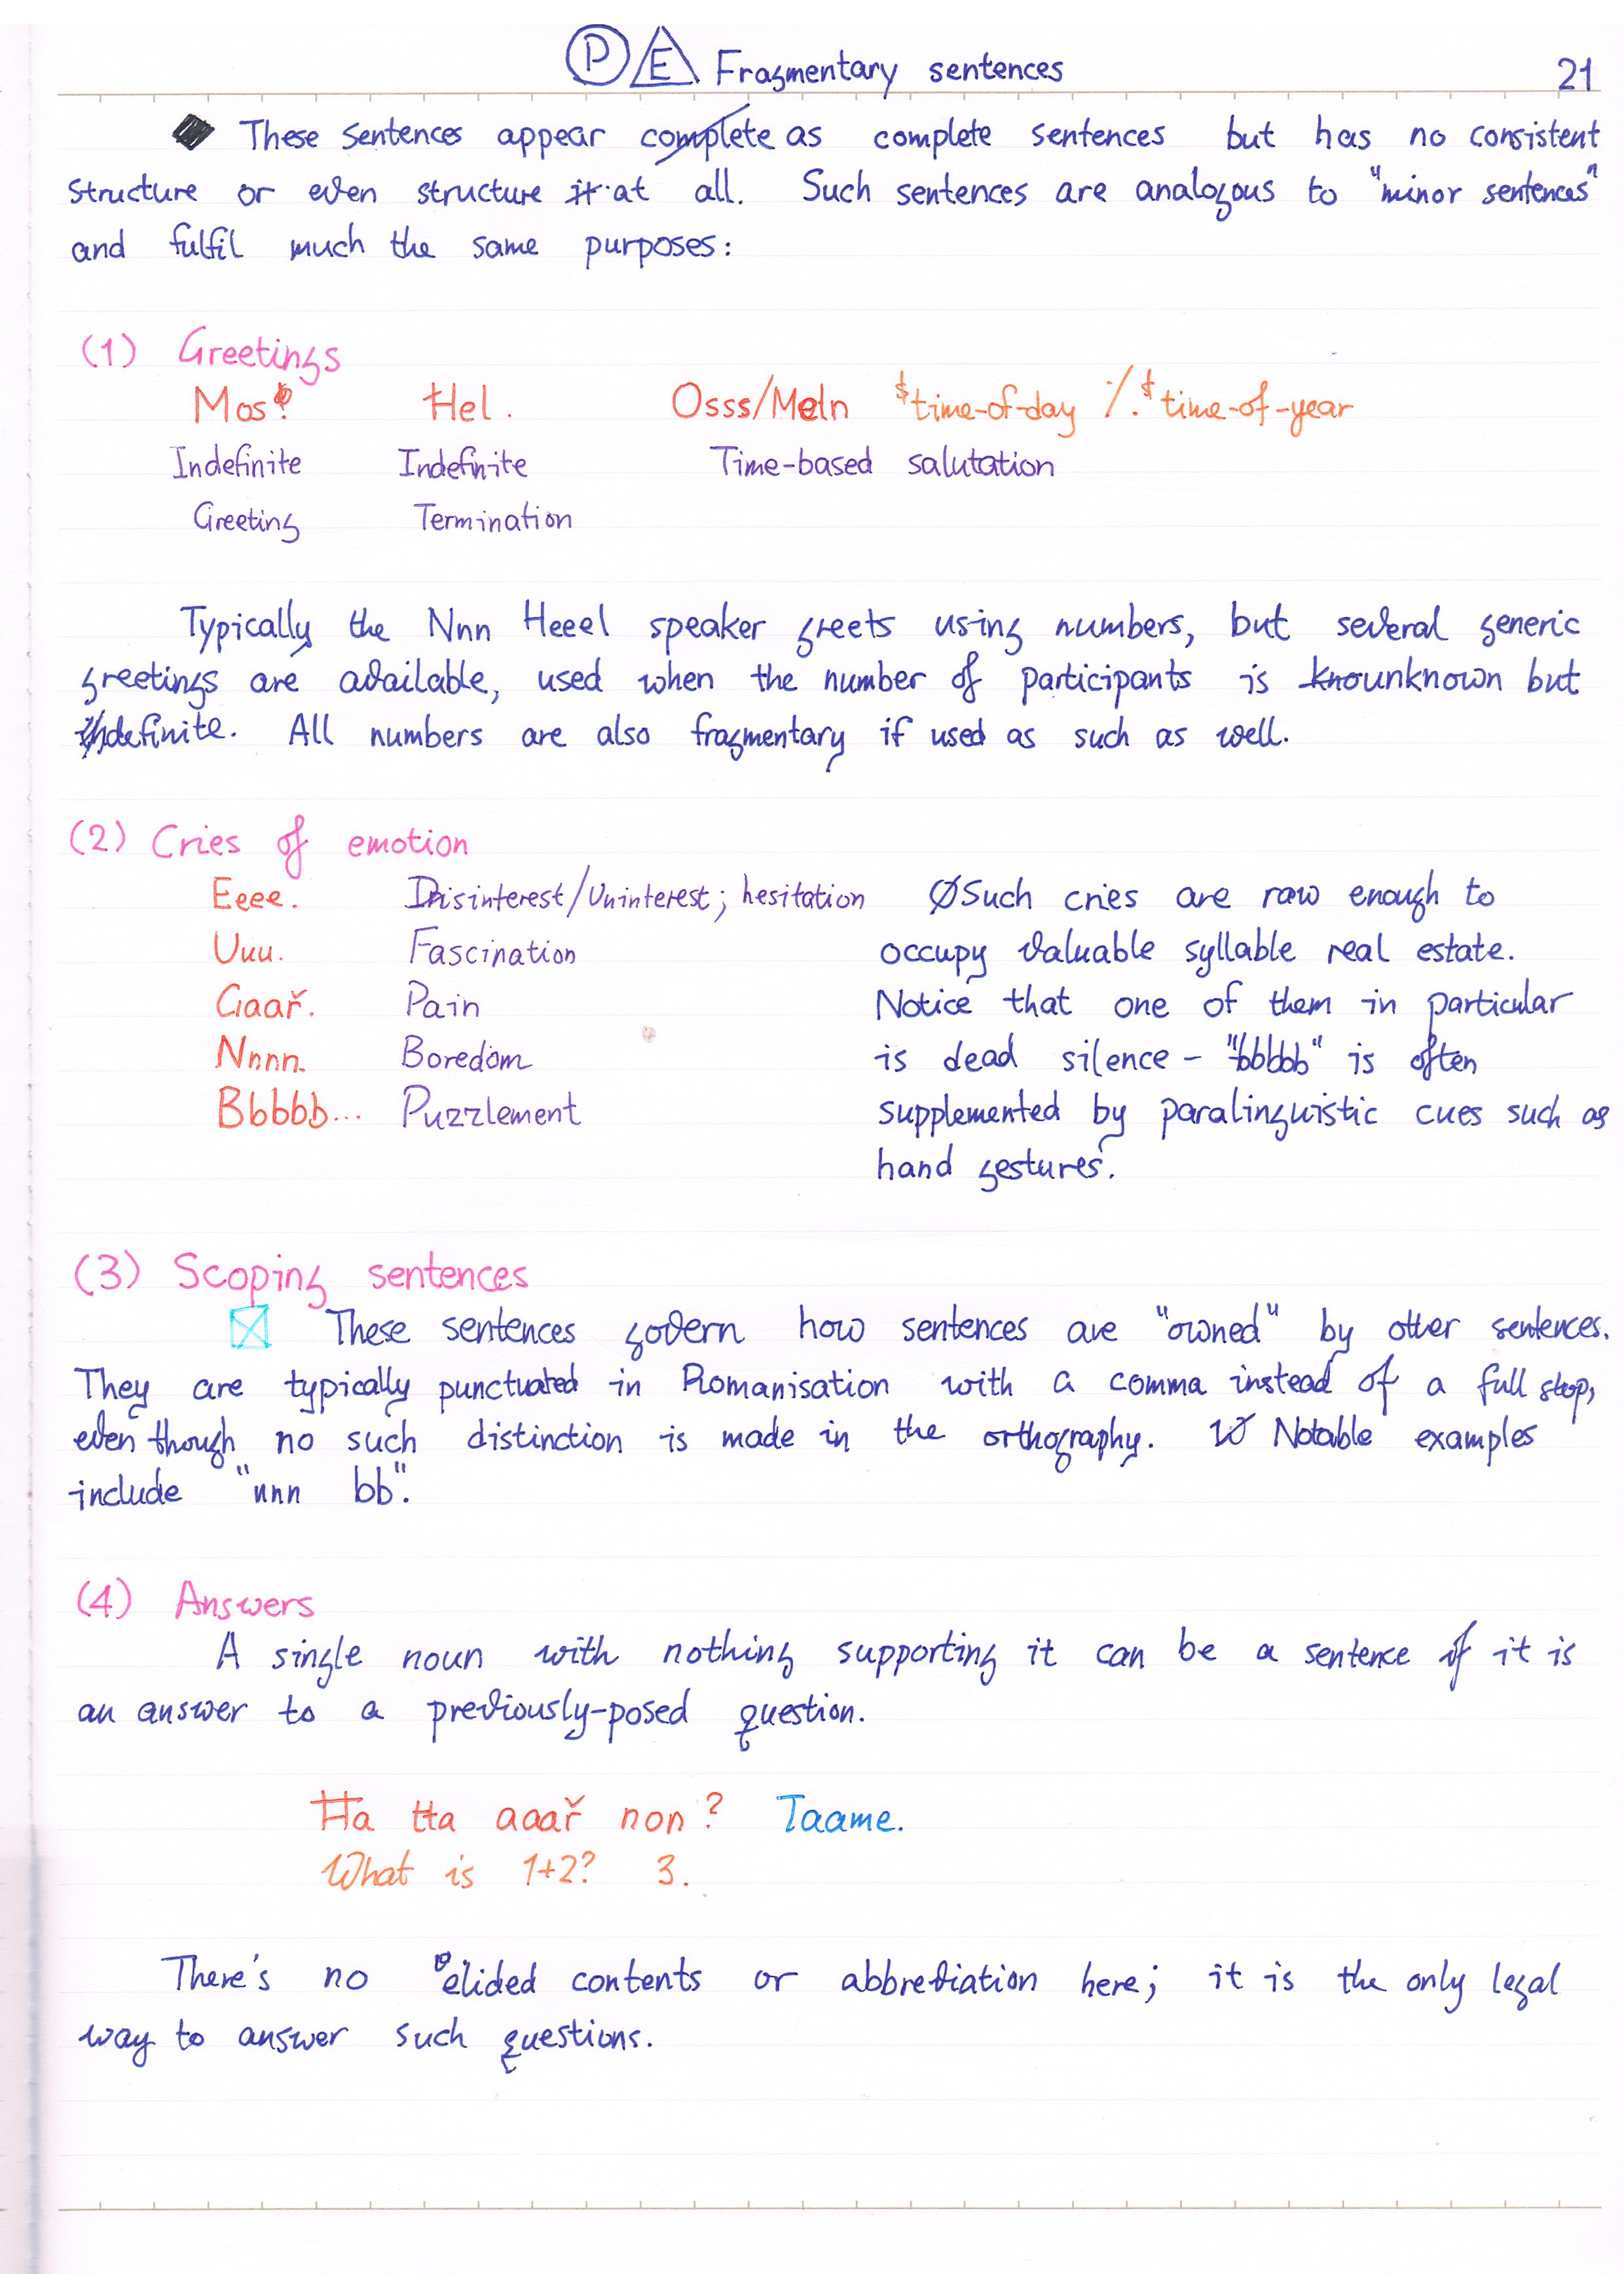 P E Fragmentary sentences 21
These sentences appear complete as complete sentences but has no consistent
structure or even structure it at all. Such sentences are analogous to "minor sentences"
and fulfil much the same purposes:
(1) Greetings
Mos! Hel. Osss/Meln $time-of-day /. $time-of-year
Indefinite Indefinite Time-based salutation
Greeting Termination
Typically the Nnn Heeel speaker greets using numbers, but several generic
greetings are available, used when the number of participants is kno unknown but
indefinite. All numbers are also fragmentary if used as such as well.
(2) Cries of emotion
Eeee. Disinterest/Uninterest; hesitation Such cries are raw enough to
Uuu. Fascination occupy valuable syllable real estate.
Gaař. Pain Notice that one of them in particular
Nnnn. Boredom is dead silence – "bbbbb" is often
Bbbbb... Puzzlement supplemented by paralinguistic cues such as
hand gestures.
(3) Scoping sentences
These sentences govern how sentences are "owned" by other sentences.
They are typically punctuated in Romanisation with a comma instead of a full stop,
even though no such distinction is made in the orthography. Notable examples
include "nnn bb".
(4) Answers
A single noun with nothing supporting it can be a sentence if it is
an answer to a previously-posed question.
Ħa tta aaař non? Taame.
What is 1+2? 3.
There's no elided contents or abbreviation here; it is the only legal
way to answer such questions.